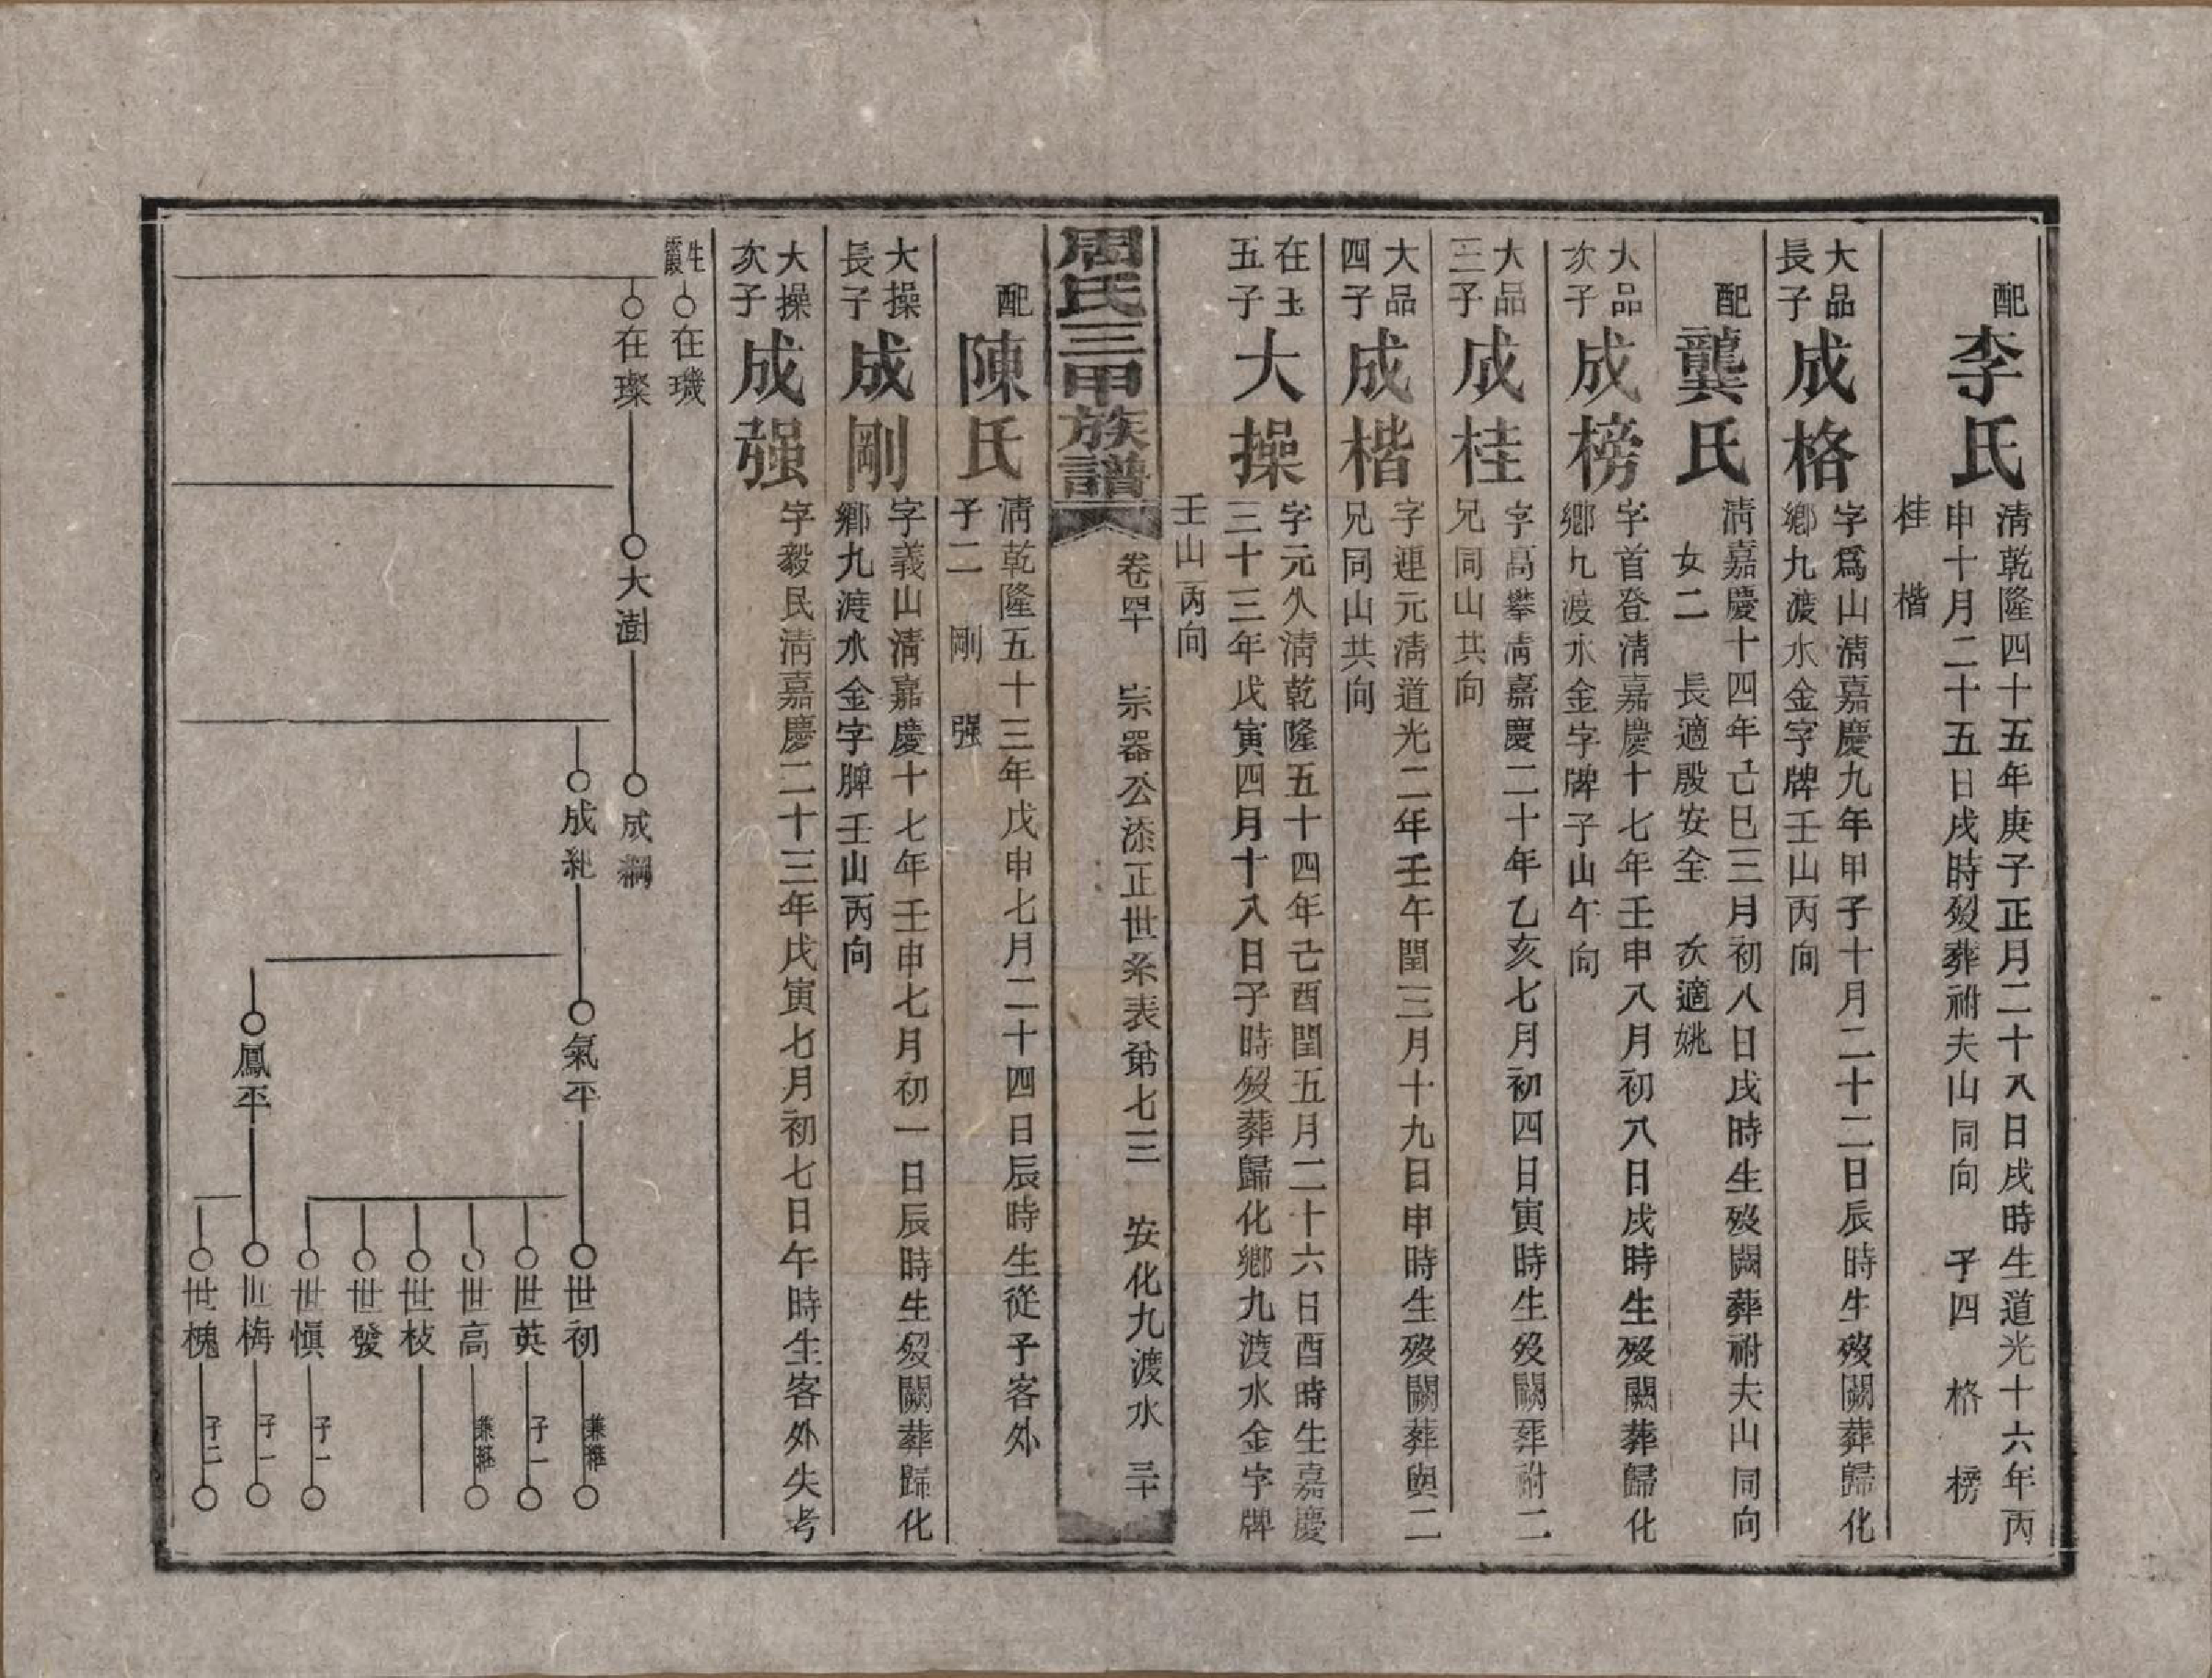 配
李氏
清乾隆四十五年庚子正月二十八日戌時生道光十六年丙
申十月二十五日戌時歿葬祔夫山同向　子四　格　榜
桂　楷
大品
長子
成格
字爲山清嘉慶九年甲子十月二十二日辰時生歿闕葬歸化
鄉九渡水金字牌壬山丙向
配
龔氏
清嘉慶十四年己巳三月初八日戌時生歿闕葬祔夫山同向
女二　長適殷安全　次適姚
大品
次子
成榜
字首登清嘉慶十七年壬申八月初八日戌時生歿闕葬歸化
鄉九渡水金字牌子山午向
大品
三子
成桂
字高攀清嘉慶二十年乙亥七月初四日寅時生歿闕葬祔二
兄同山共向
大品
四子
成楷
字連元清道光二年壬午閏三月十九日申時生歿闕葬與二
兄同山共向
在玉
五子
大操
字元久清乾隆五十四年己酉閏五月二十六日酉時生嘉慶
三十三年戊寅四月十八日子時歿葬歸化鄉九渡水金字牌
壬山丙向
周氏三甲族譜
卷四十　宗器公添正世系表第七三　安化九渡水　三十
配
陳氏
清乾隆五十三年戊申七月二十四日辰時生從子客外
子二　剛　强
大操
長子
成剛
字義山清嘉慶十七年壬申七月初一日辰時生歿闕葬歸化
鄉九渡水金字脾壬山丙向
大操
次子
成强
字毅民清嘉慶二十三年戊寅七月初七日午時生客外失考
生
在璣
在璨
大澍
成綱
成紀
氣平
鳳平
世初
世英
子一
世高
世枝
世發
世愼
子一
世梅
子一
世槐
子二